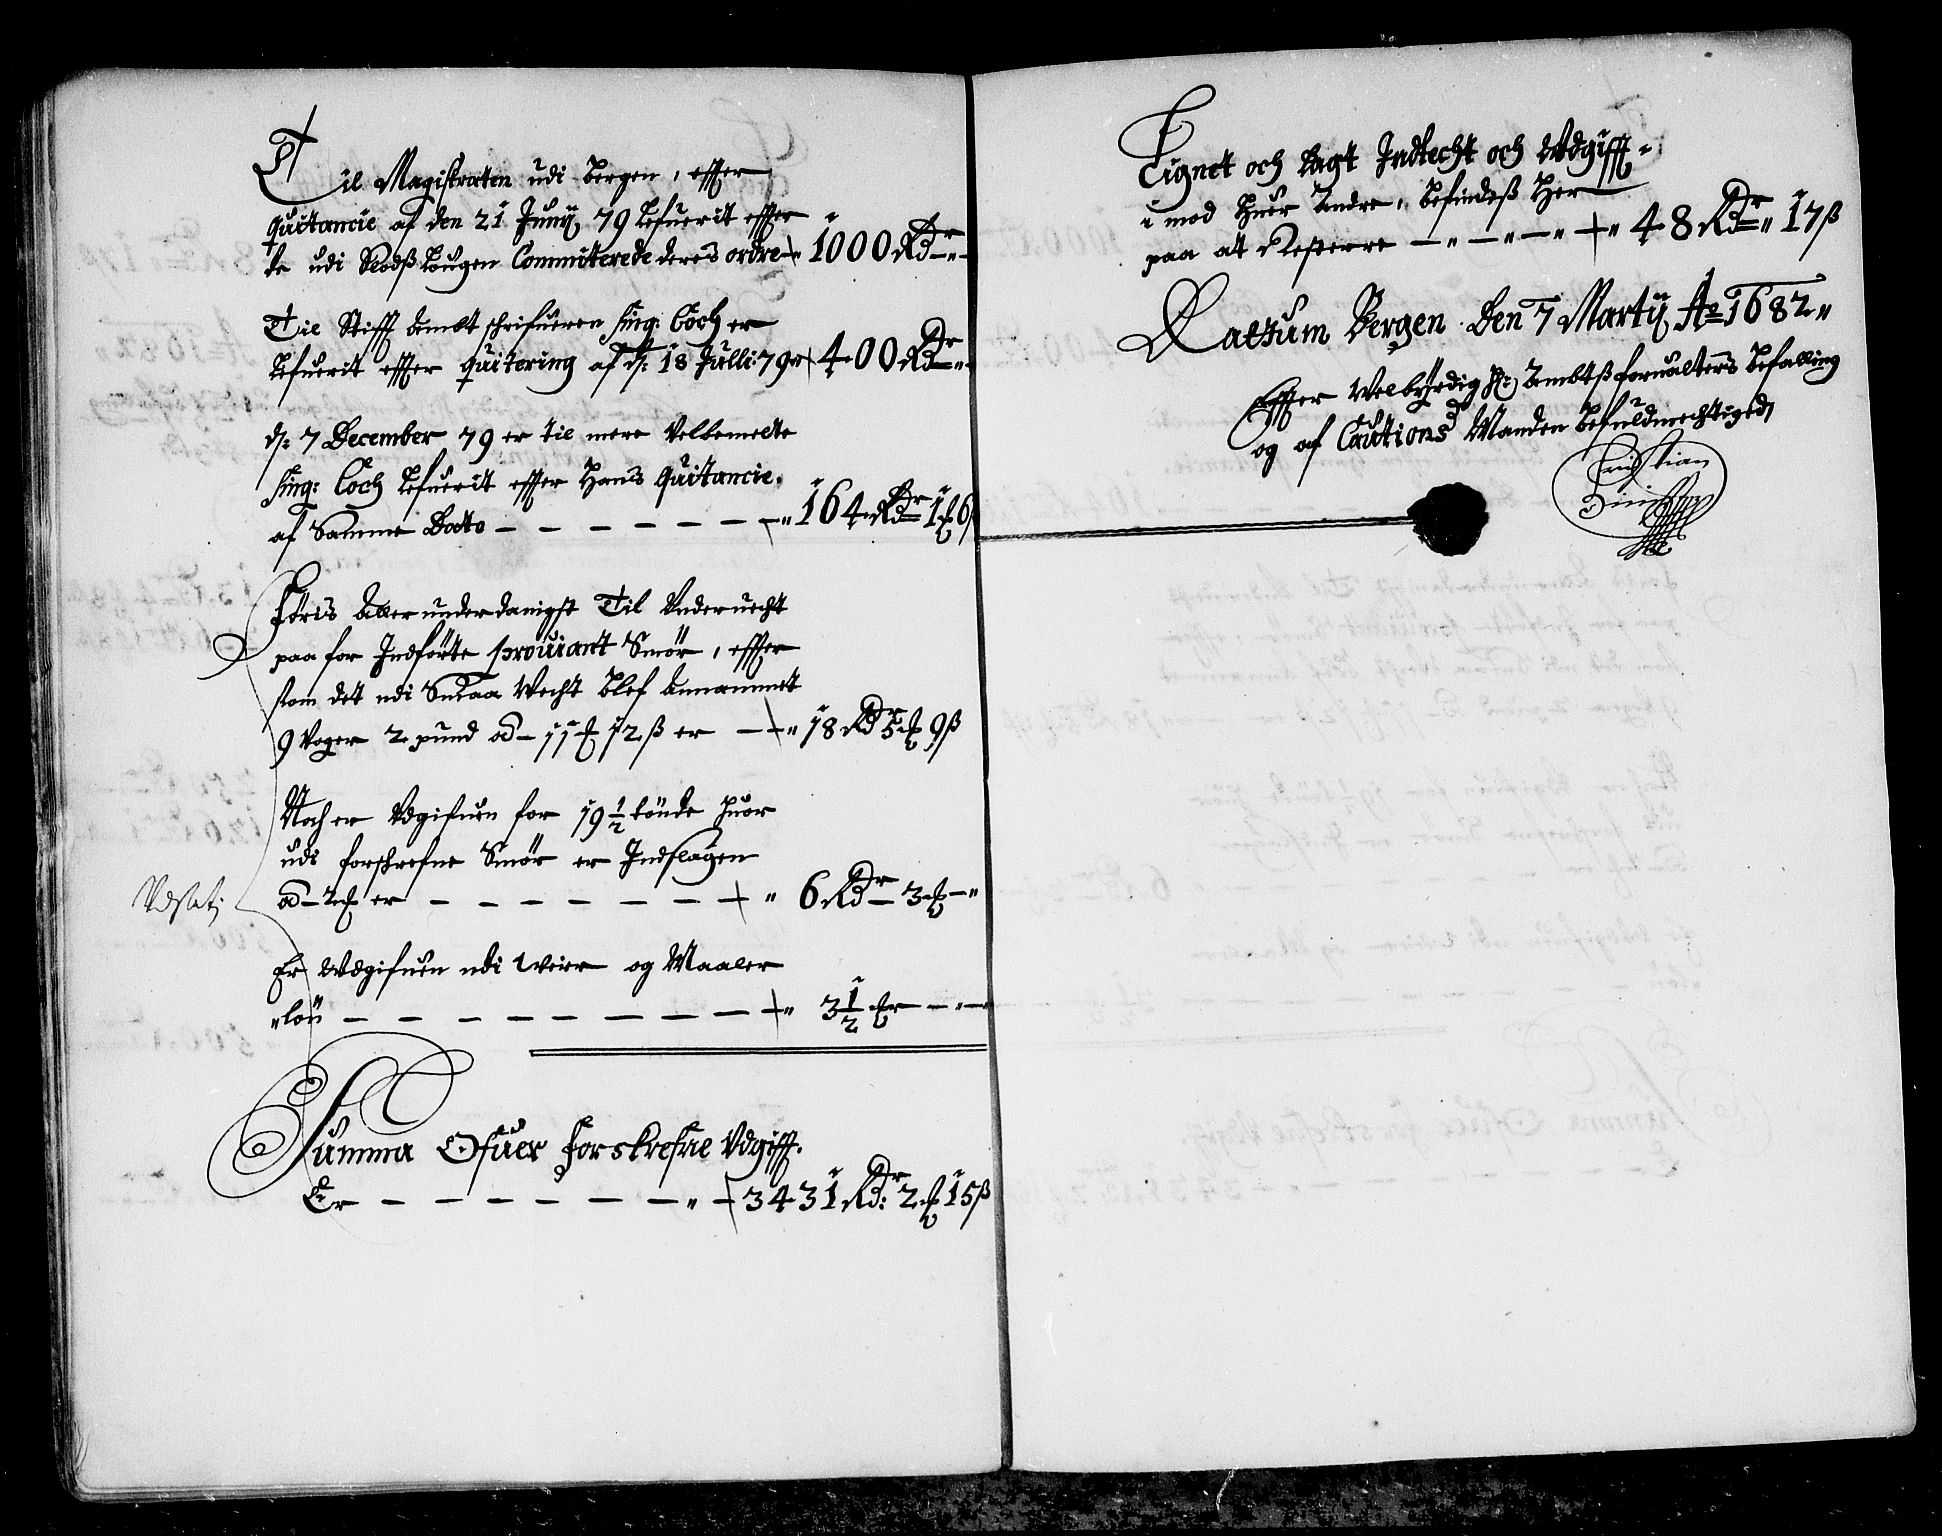 Til Magistraten udi Bergen, effter
Quitancie af den 21 Junij 79 Lefuerit effter
de udi Slodtz Lougen Committerede deris ordre 1000 Rdr
Til Stifft Ambt schrifueren Sing: Coch er
Lefuerit effter Quitering af d: 18 Julli: 79 400 Rdr
d: 7 December 79 er til mere Velbemelte
Sing: Coch Lefuerit effter Hans Quitancie.
af Samme Dato 164 Rdr 1 ℔ 6 ß
Føris Allerunderdanigst Til Underuecht
paa for Indførte proviant Smør, effter
som det udi Smaa Vecht blef Annammet
9 Voger 2 pund ad 11 ℔ 12 ß er 18 Rdr 5 ℔ 9 ß
Noch er Udgifuen for 19 1/2 tønde huor
udi forschrefne Smør er Indslagen
ad 2 ℔ er 6 Rdr 3 ℔
Udsat
Er Udgifuen udi Veier og Maaler
løn 3 1/2 ℔
Summa Ofuer forskrefne Udgifft.
Er 3431 Rdr: 2 ℔ 15 ß
Lignet och Lagt Indtecht och Udgifft
i mod huer Andre, befindeß Her
paa at Resterre 48 Rdr 17 ß
Datum Bergen Den 7 Martij Ao 1682
Effter Welbyrdig Hr: Ambtßforualters befalling
og af Cautions Manden befuldmechtiged
Cristian